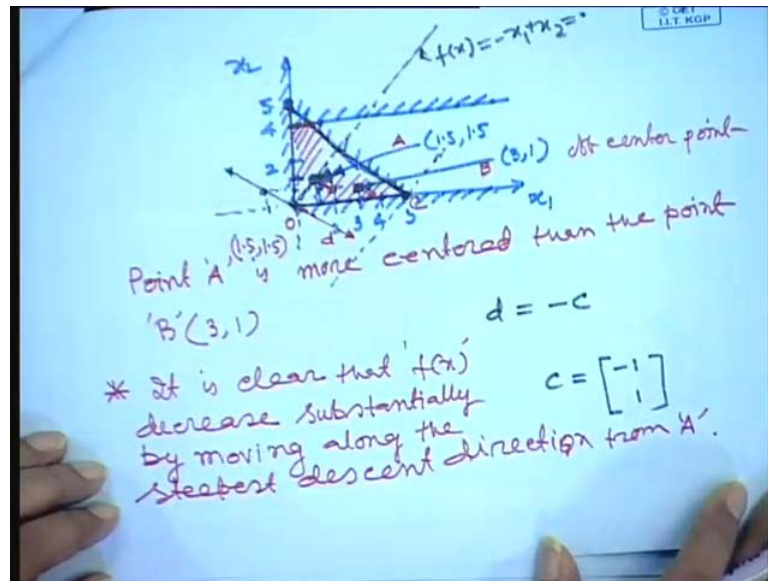 © CET
I.I.T. KGP
f(x) = -x₁+x₂ =
x₂
5
4
2
A (1.5, 1.5
(3, 1) center point
B
C
x₁
0 1 2 3 4 5
d
(1.5, 1.5)
Point 'A' is more centered than the point
'B' (3, 1)
d = -c
* It is clear that 'f(x)'
c = [-1
1]
decrease substantially
by moving along the
steepest descent direction from 'A'.